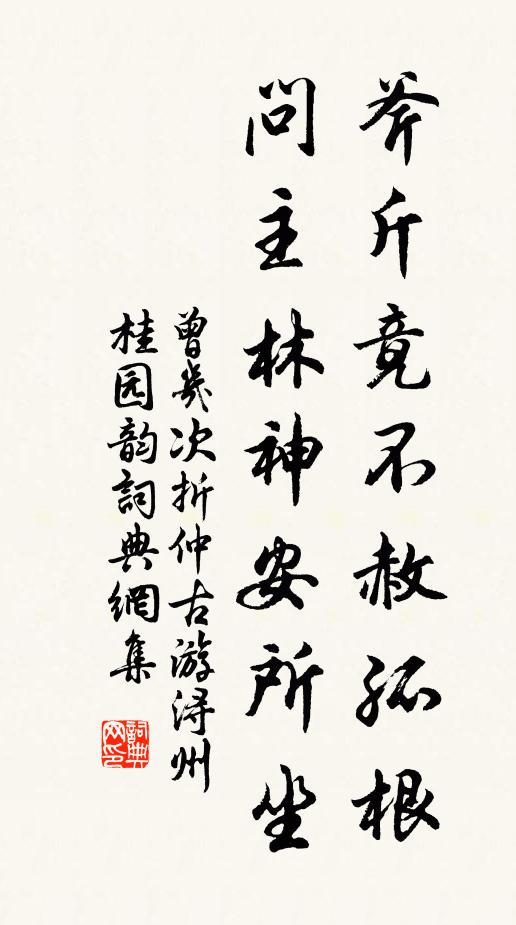 斧斤竟不赦孤根
問主林神安所坐
曾幾次折仲古游浔州
桂园韵詞典網集
詞典网印